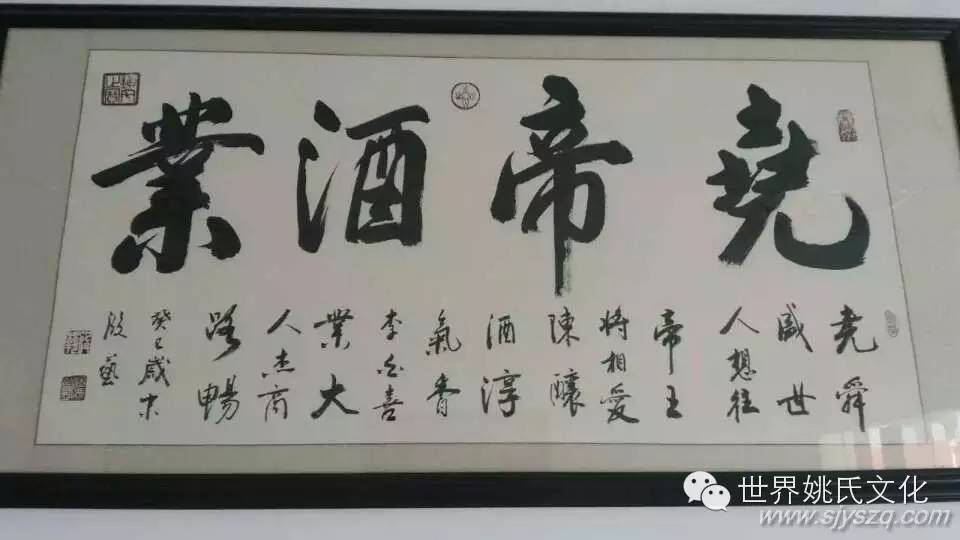 堯帝酒業
堯舜
盛世
人想往
帝王
將相愛
陳釀
酒淳
氣香
李白喜
業大
人杰商
路暢
癸巳歲末
段藝
世界姚氏文化
www.sjyszq.com